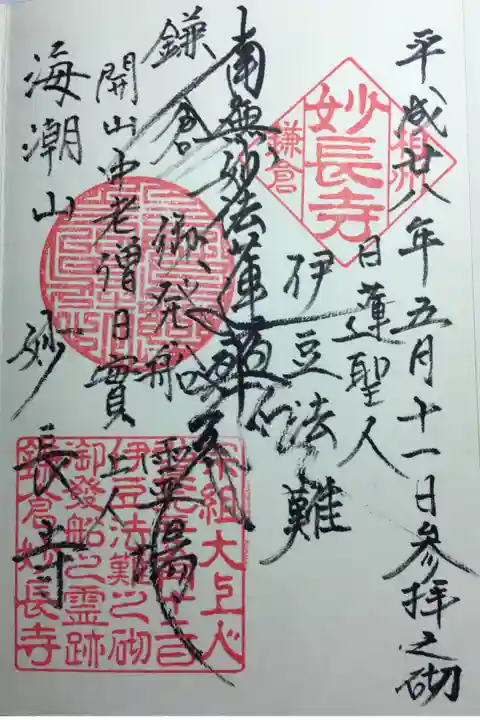 平成廿八年五月十一日参拝之砌
相州
妙長寺
鎌倉
日蓮聖人
伊豆法難
南無妙法蓮華経
鎌倉
御発船
霊場
開山中老僧日實上人
海潮山
妙長寺
宗祖大上人
伊豆法難之砌
御發船之霊跡
鎌倉妙長寺